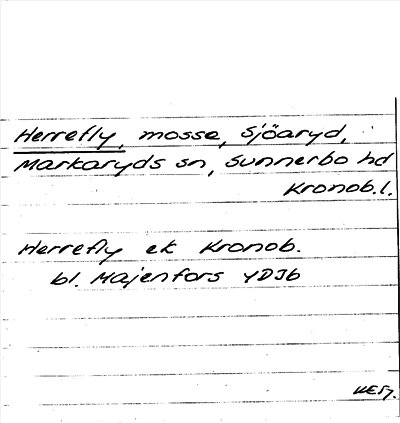 Herrefly, mosse, Sjöaryd,
Markaryds sn, Sunnerbo hd
Kronob.l.
Herrefly ek Kronob.
bl. Majenfors YDJb